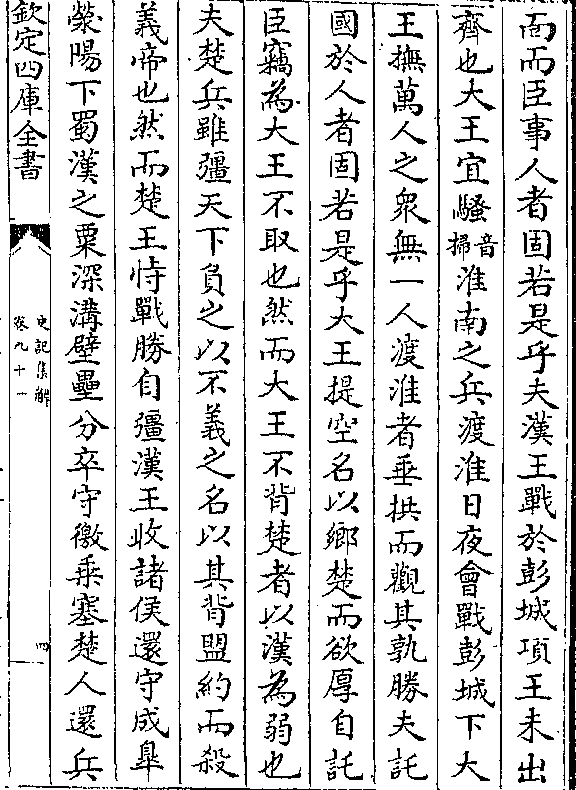 面而臣事人者固若是乎夫漢王戰於彭城項王未出
齊也大王宜騷音掃淮南之兵渡淮日夜會戰彭城下大
王撫萬人之衆無一人渡淮者垂拱而觀其孰勝夫託
國於人者固若是乎大王提空名以鄉楚而欲厚自託
臣竊為大王不取也然而大王不背楚者以漢為弱也
夫楚兵雖彊天下負之以不義之名以其背盟約而殺
義帝也然而楚王恃戰勝自彊漢王收諸侯還守成臯
滎陽下蜀漢之粟深溝壁壘分卒守徼乗塞楚人還兵
欽定四庫全書
史記集解
卷九十一
四